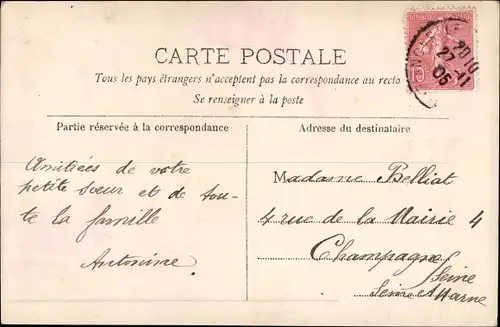 CARTE POSTALE
Tous les pays étrangers n'acceptent pas la correspondance au recto
Se renseigner à la poste
Partie réservée à la correspondance
Amitiées de votre
petite sœur et de tou-
te la famille
Antonine
Adresse du destinataire
Madame Belliat
4 rue de la Mairie 4
Champagne s/Seine
Seine et Marne
15
20 10
27 - 11
06